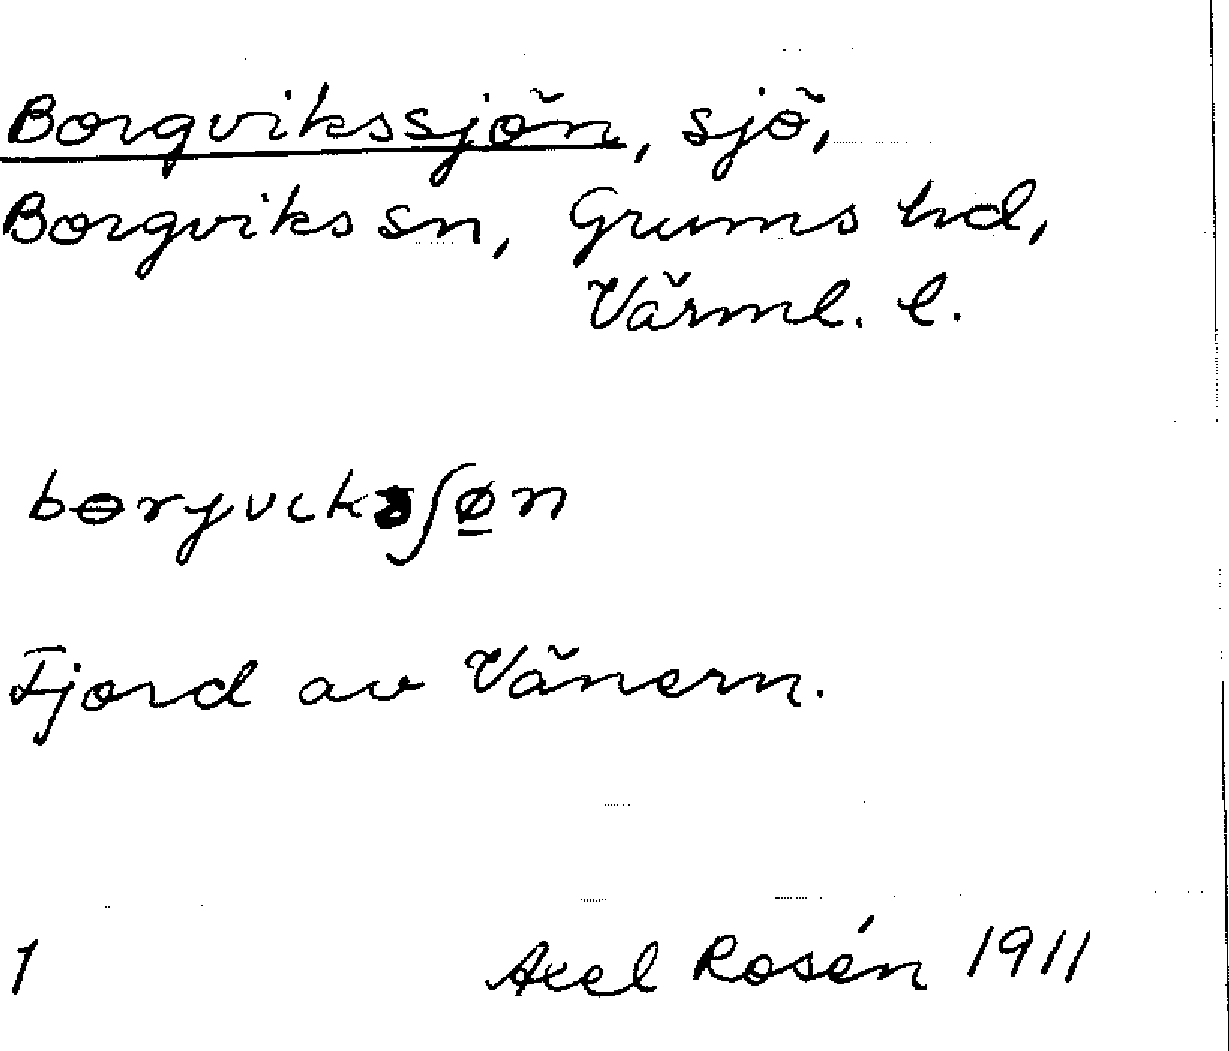 Borgvikssjön, sjö,
Borgviks sn, Grums hd,
Värml. l.
bɵryvıksʃøn
Fjord av Vänern.
1 Axel Rosén 1911